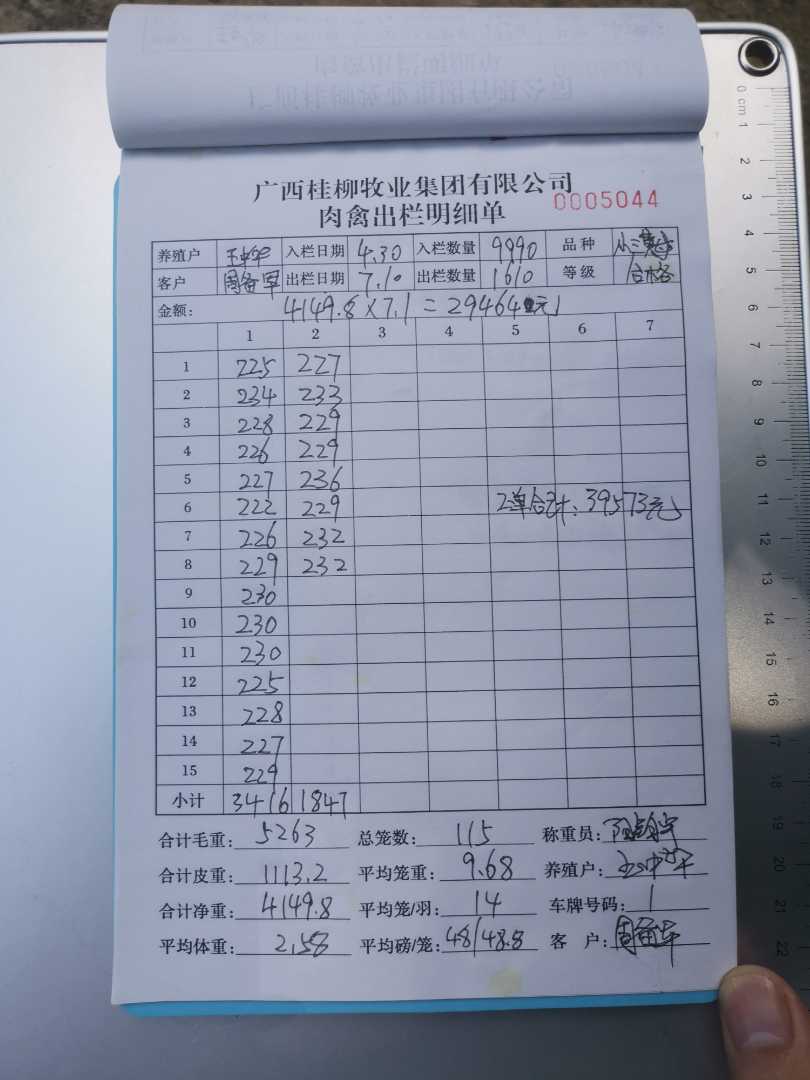 广西桂柳牧业集团有限公司
肉禽出栏明细单 0005044
养殖户 入栏日期 4.30 入栏数量 9990 品种
客户 出栏日期 7.10 出栏数量 1610 等级 合格
金额: 4149.8×7.1=29464元
1 2 3 4 5 6 7
1 225 227
2 234 233
3 228 229
4 226 229
5 227 236
6 222 229 2单合计:39573元
7 226 232
8 229 232
9 230
10 230
11 230
12 225
13 228
14 227
15 229
小计 3416 1847
合计毛重: 5263 总笼数: 115 称重员:
合计皮重: 1113.2 平均笼重: 9.68 养殖户:
合计净重: 4149.8 平均笼/羽: 14 车牌号码: 1
平均体重: 2.58 平均磅/笼: 48/48.8 客 户:
0 cm 1 2 3 4 5 6 7 8 9 10 11 12 13 14 15 16 17 18 19 20 21 22